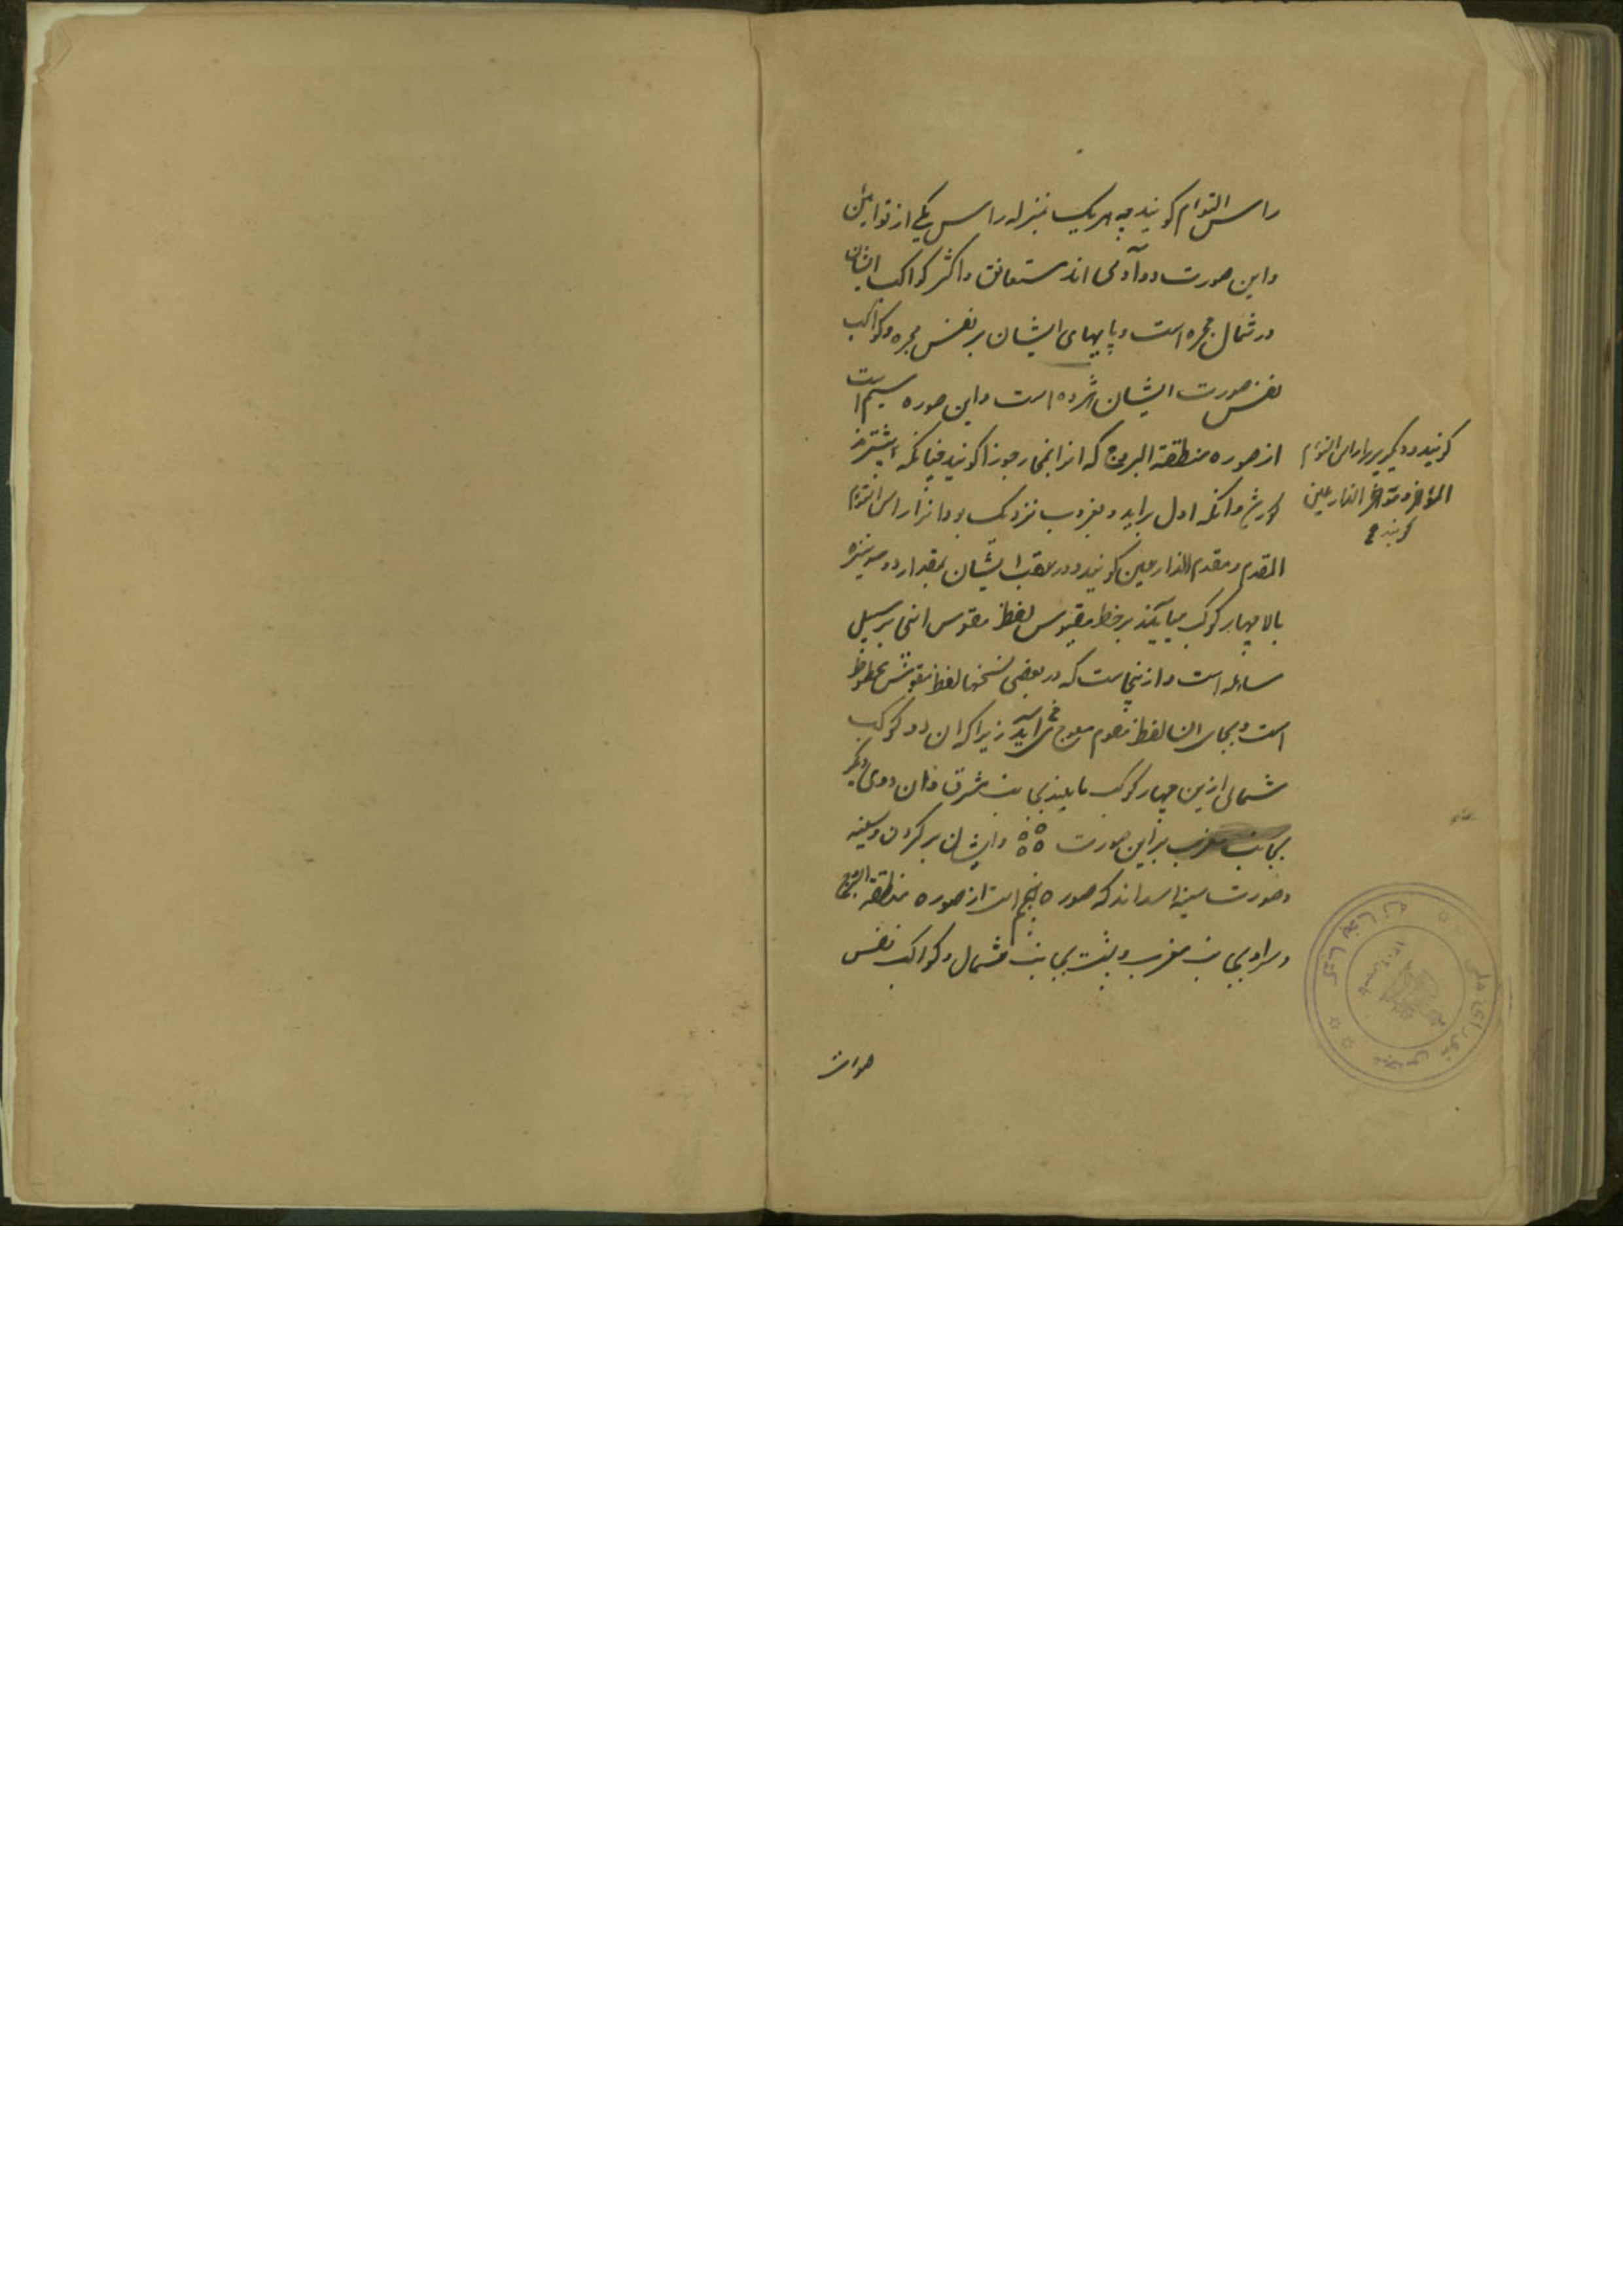 راس التوام کویند چه هریک بمنزله راس یکی از توامین
واین صورت دو آدمی اند متعانق واکثر کواکب ایشان
در شمال مجره است و پایهای ایشان بر نفس مجره وکواکب
نفس صورت ایشان هژده است واین صوره سیم است
از صوره منطقة البروج که انرا جوزا کویند چنانکه پیشتر
وانکه اول براید و بغروب نزدیک بود انرا راس التوام
المقدم ومقدم الذارعین کویند ودر عقب ایشان بمقدار دو نیزه
بالا چهار کوکب میآیند بر خط مقوس لفظ مقوس اینجا بر سبیل
مساهله است وازینجاست که در بعضی نسخها لفظ مقوس
است وبجای ان لفظ معوج می آید زیراکه ان دو کوکب
شمالی ازین چهار کوکب مایلند بجانب شرق وان دوی دیکر
بجانب مغرب براین صورت وایشان بر کردن وسینه
وصورت اسداند که صوره پنجم است از صوره منطقة البروج
وسر او بجانب مغرب وپشت بجانب شمال وکواکب نفس
کویند ودیکریرا راس التوام
المؤخر و مؤخر الذارعین
کویند
صورت